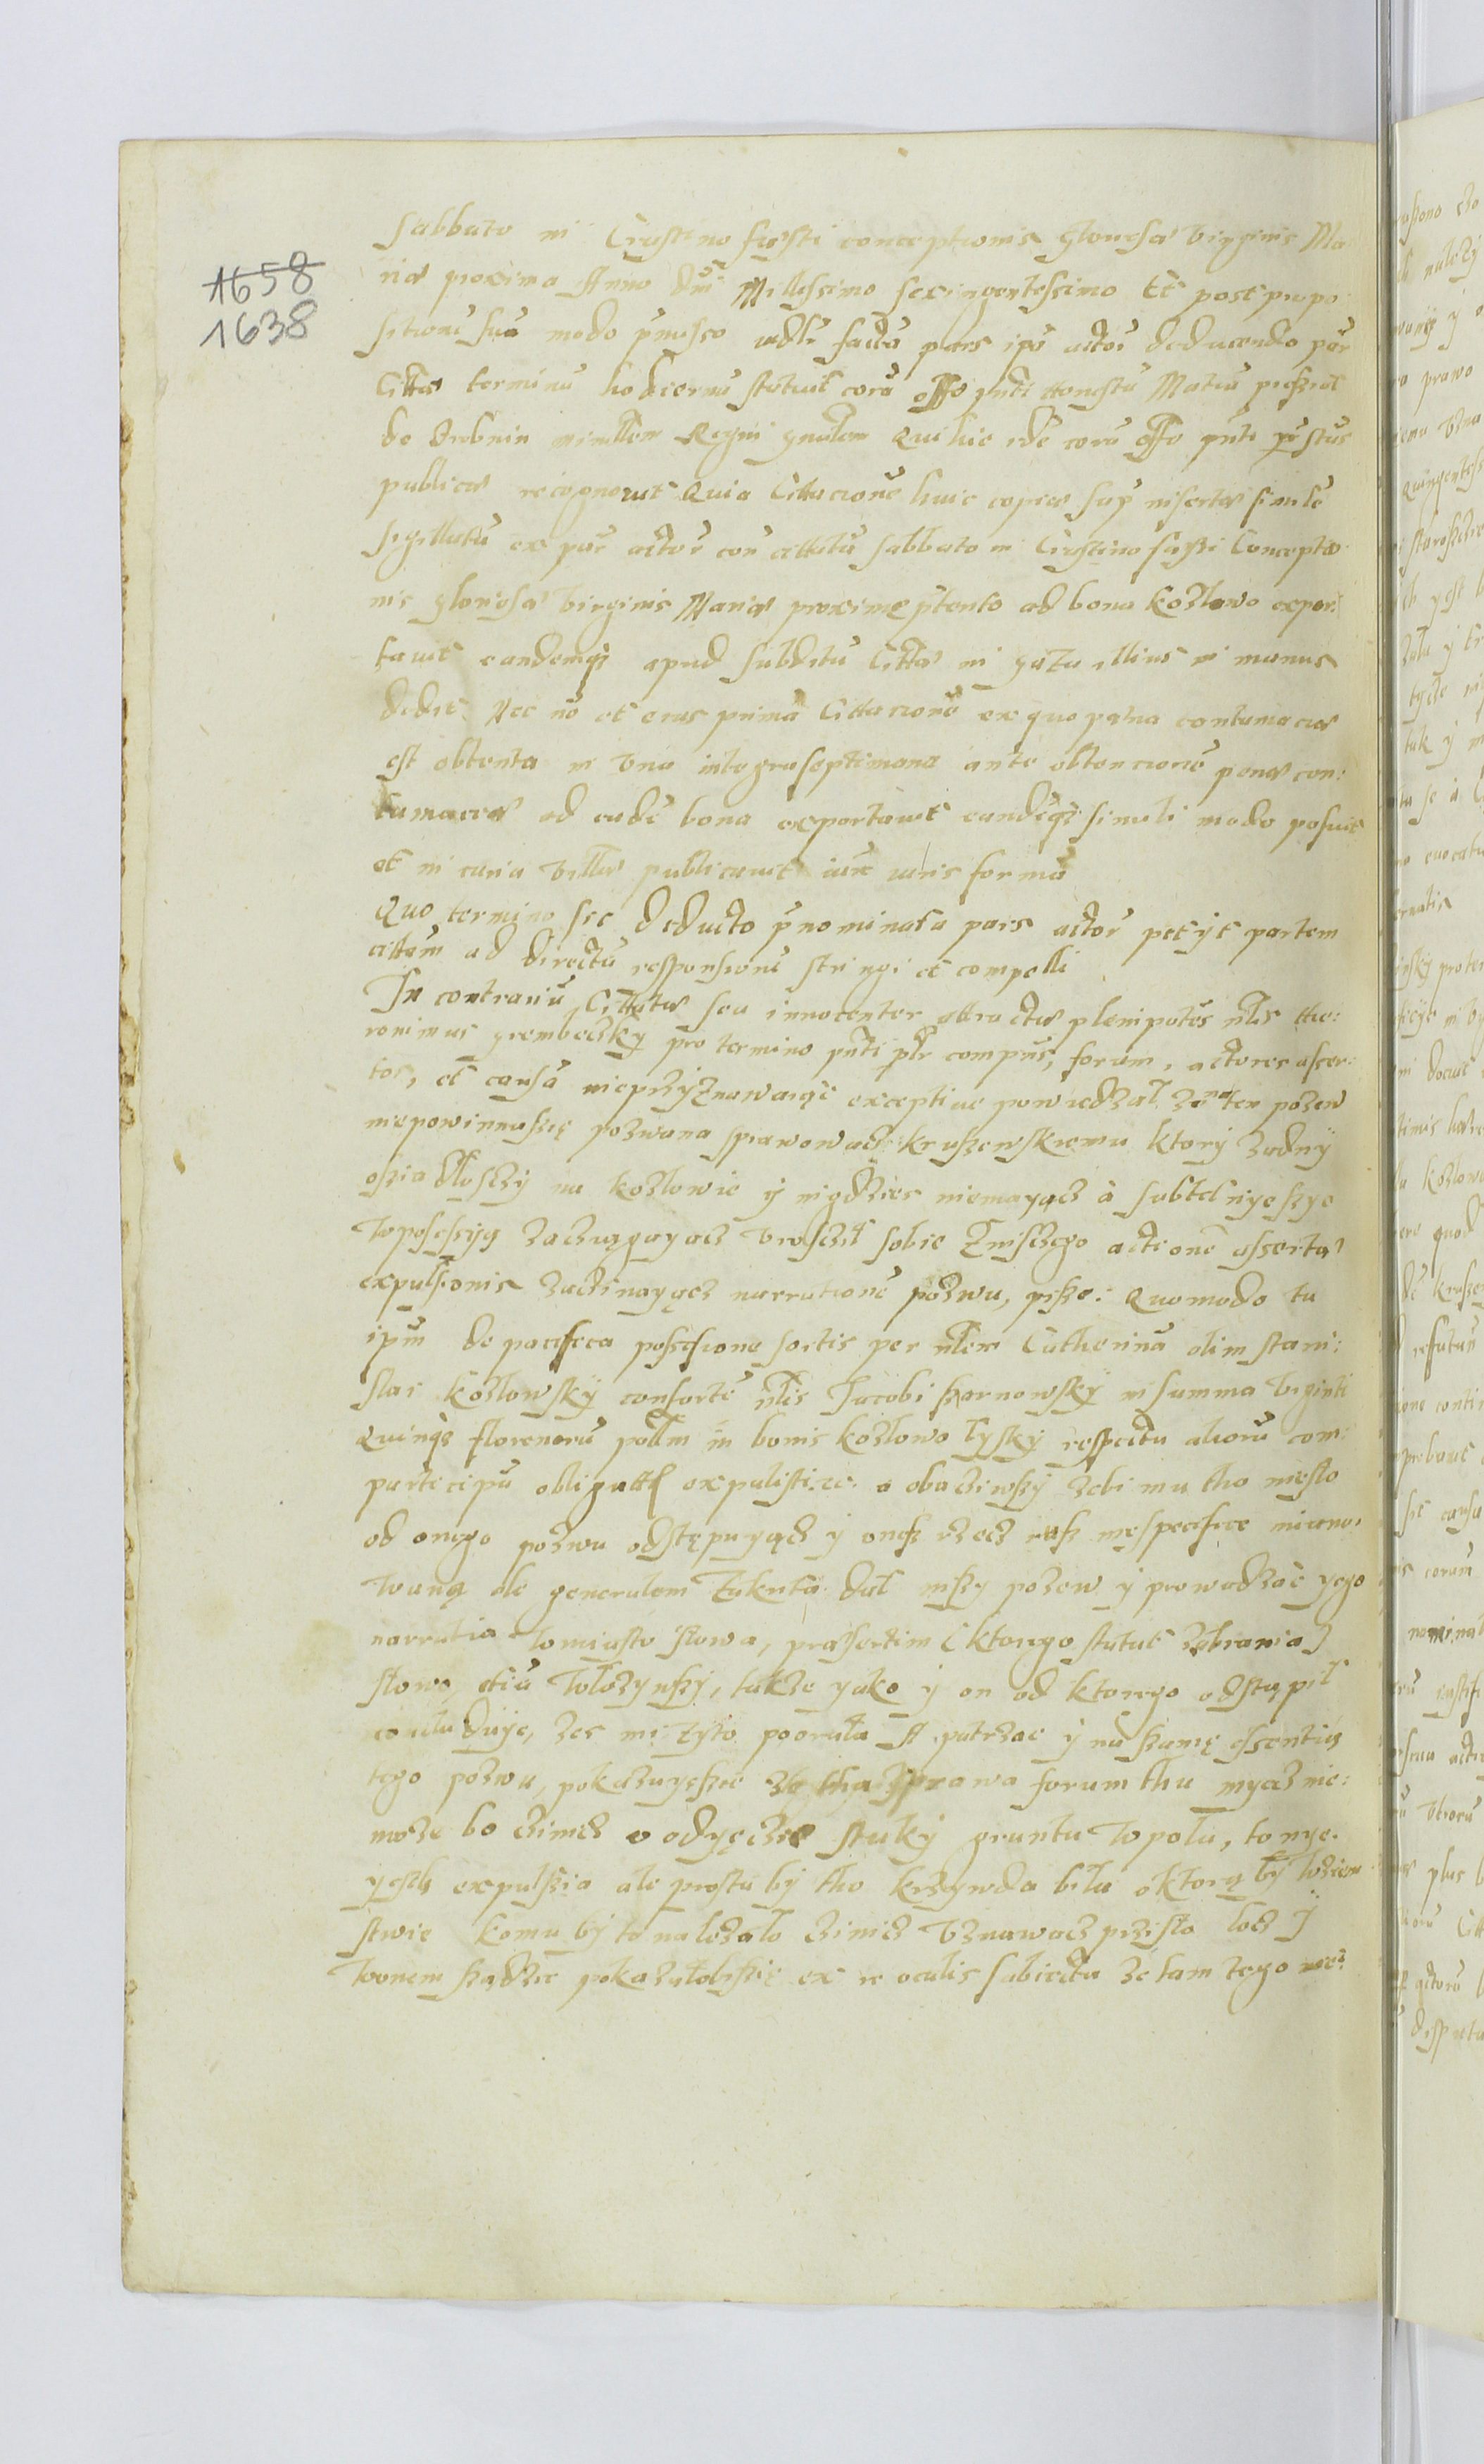 1658
1638
Sabbato in Crastino festi conceptionis gloriosae Virginis Ma
riae proximo Anno dni Millesimo sexingentessimo Et post propo
sitione sua modo pmisso vdlt facta pars ipa actor deducendo par
Citta terminu hodiernu statuit cora offo pnti Honestu Matia
de Dubnin ministlem Regni gnalem Qui hic ide cora offo pnti
publice recognovit Quia Cittacione huic copiae sup inserta simile
sigillata ex par actor con cittata sabbato in Crastino festi Conceptio
nis gloriosa Virginis Maria proxime ptento ad bona Kozlowo expor:
tavit eandemqz apud subditu Citta in illius in manus
dedit. Nec no et eius prima Cittacione ex quo paena contumaciae
est obtenta in Una integra septimana ante obtencione pena con:
tumaciae ad eade bona exportavit eandeqz simili modo posuit
et in curia Villae publicavit iux iuris forma
Quo termino sic deducto pnominata pars actor petyt partem
cittam ad directa responsione stringi et compelli
In contrariu Cittata seu innocenter attracta plenipotes nlis Hie:
ronimus grembeczky pro termino pnti plr comprns, forum, actores asser:
tos, et causa nieprziznawaiąc exceptive powiedzał ze na ten pozew
niepowinnaszię pozwana sprawowacz kruszewskiemu ktory zadny
osziadłosczy na kozlowie y nigdzies niemayącz à subtelnyeszye
w possessyą zacziągayącz vroscził sobie z nisczego actione asserta
expulsionis zaczinayącz narratione pozwu, pisze: Quomodo tu
ipm de pacifica possessione sortis per nlem Catherina olim Stani:
slai Kozlowsky consorte nlis Jacobi szarnowsky in summa Viginti
Quinqz florenoru pollm in bonis kozlowo Lysky respectu alioru com
participu obligatt expulisti. zc. a obacziwszy zebi mu tho nieslo
od onego pozwu odstępuyącz y onesz rzecz nie specifice miano.
waną ale generalem zakrita dał inszy pozew y prowadząc yego
narratia w miasto słowa, praesertim (ktorego statut zabrania)
słowo, etiā włozywszy, takze yako y on od ktorego odstąpił
concluduye, zes mi zyto pooraƚa A patrzac y na szamę essentią
tego pozwu, pokazuyeszie ze tha sprawa forum thu myecz nie:
moze bo czinicz o odyęczie stuky gruntu w polu, to nye.
yestz expulszia ale prosta by tho krzywda biła o ktorą by w ziem
stwie komu by to nalezało czinicz Vznawacz przisło locz y
w onem sządzie pokazałobyszię ex re oculis subiecta ze tam tego nie: